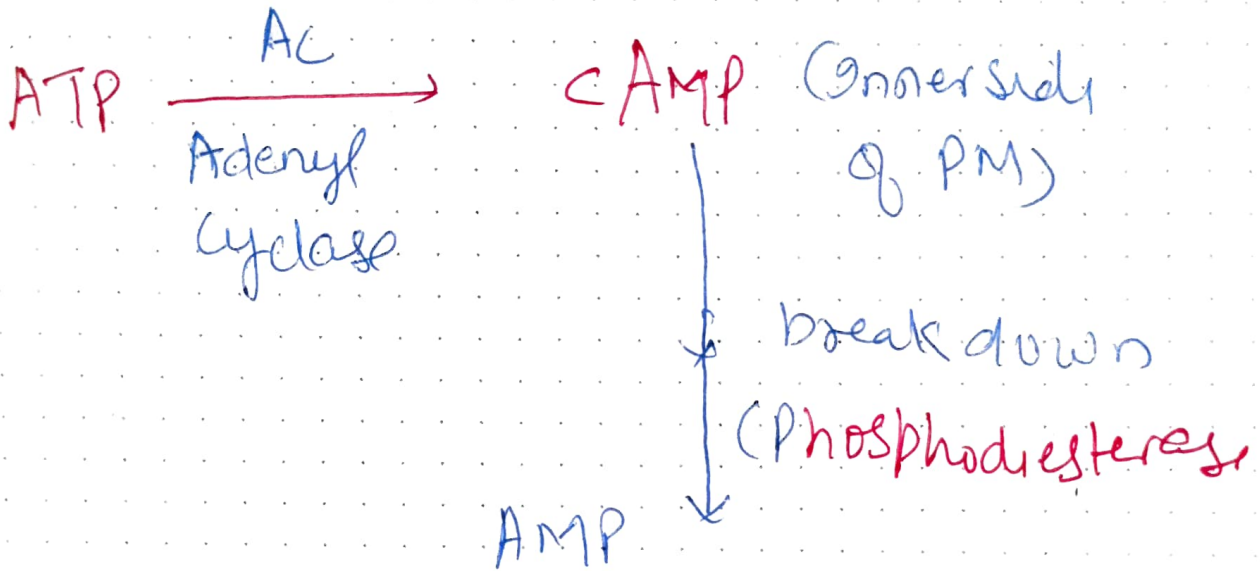 AC
ATP → cAMP (Inner side
Adenyl
of PM)
Cyclase
breakdown
(Phosphodiesterase
AMP